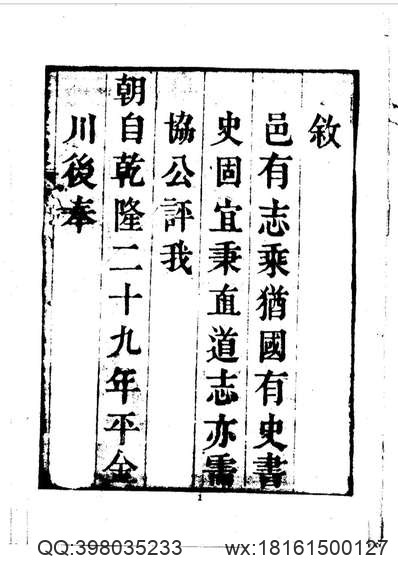 敘
邑有志乘猶國有史書
史固宜秉直道志亦需
協公評我
朝自乾隆二十九年平金
川後奉
1
QQ:398035233 wx:18161500127